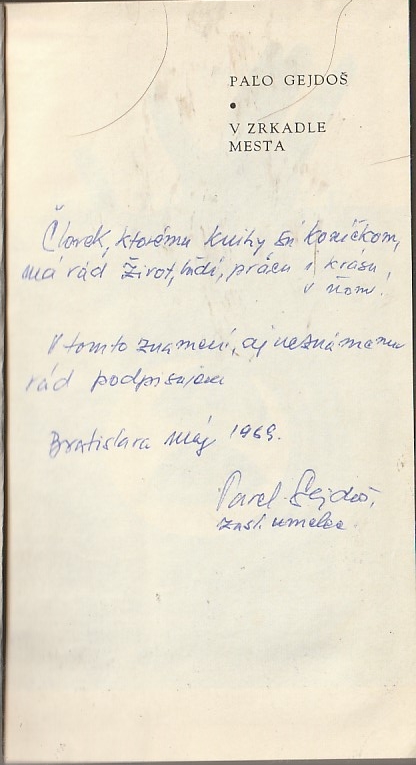 PAĽO GEJDOŠ
•
V ZRKADLE
MESTA
Človek, ktorému knihy sú koníčkom,
má rád život, ľudí, prácu i krásu
v ňom.
V tomto znamení, aj neznámemu
rád podpisujem
Bratislava Máj 1969.
Pavel Gejdoš,
zasl. umelec